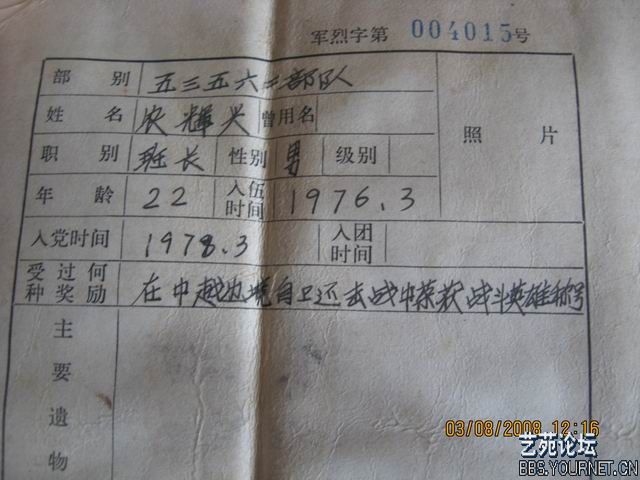 军烈字第 004015号
部别 五三五六二部队
姓名 农辉兴 曾用名 照片
职别 班长 性别 男 级别
年龄 22 入伍时间 1976.3
入党时间 1978.3 入团时间
受过何种奖励 在中越边境自卫还击战中荣获战斗英雄称号
主要遗物
03/08/2008 12:16
艺苑论坛
BBS.YOURNET.CN